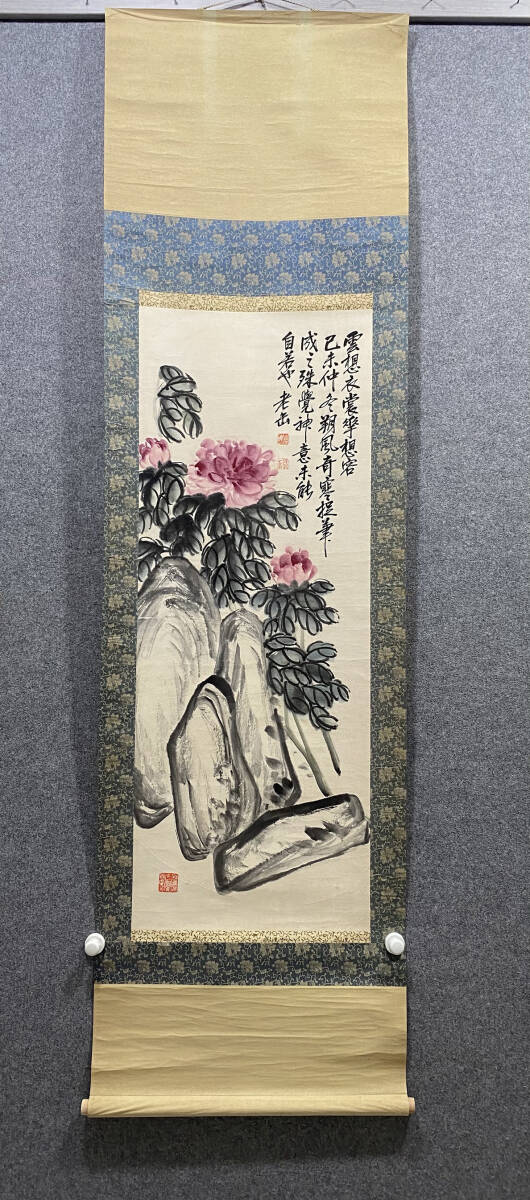 雲想衣裳華想容
己未仲冬朔風奇寒捉筆
成之殊覺神意未能
自若也 老缶